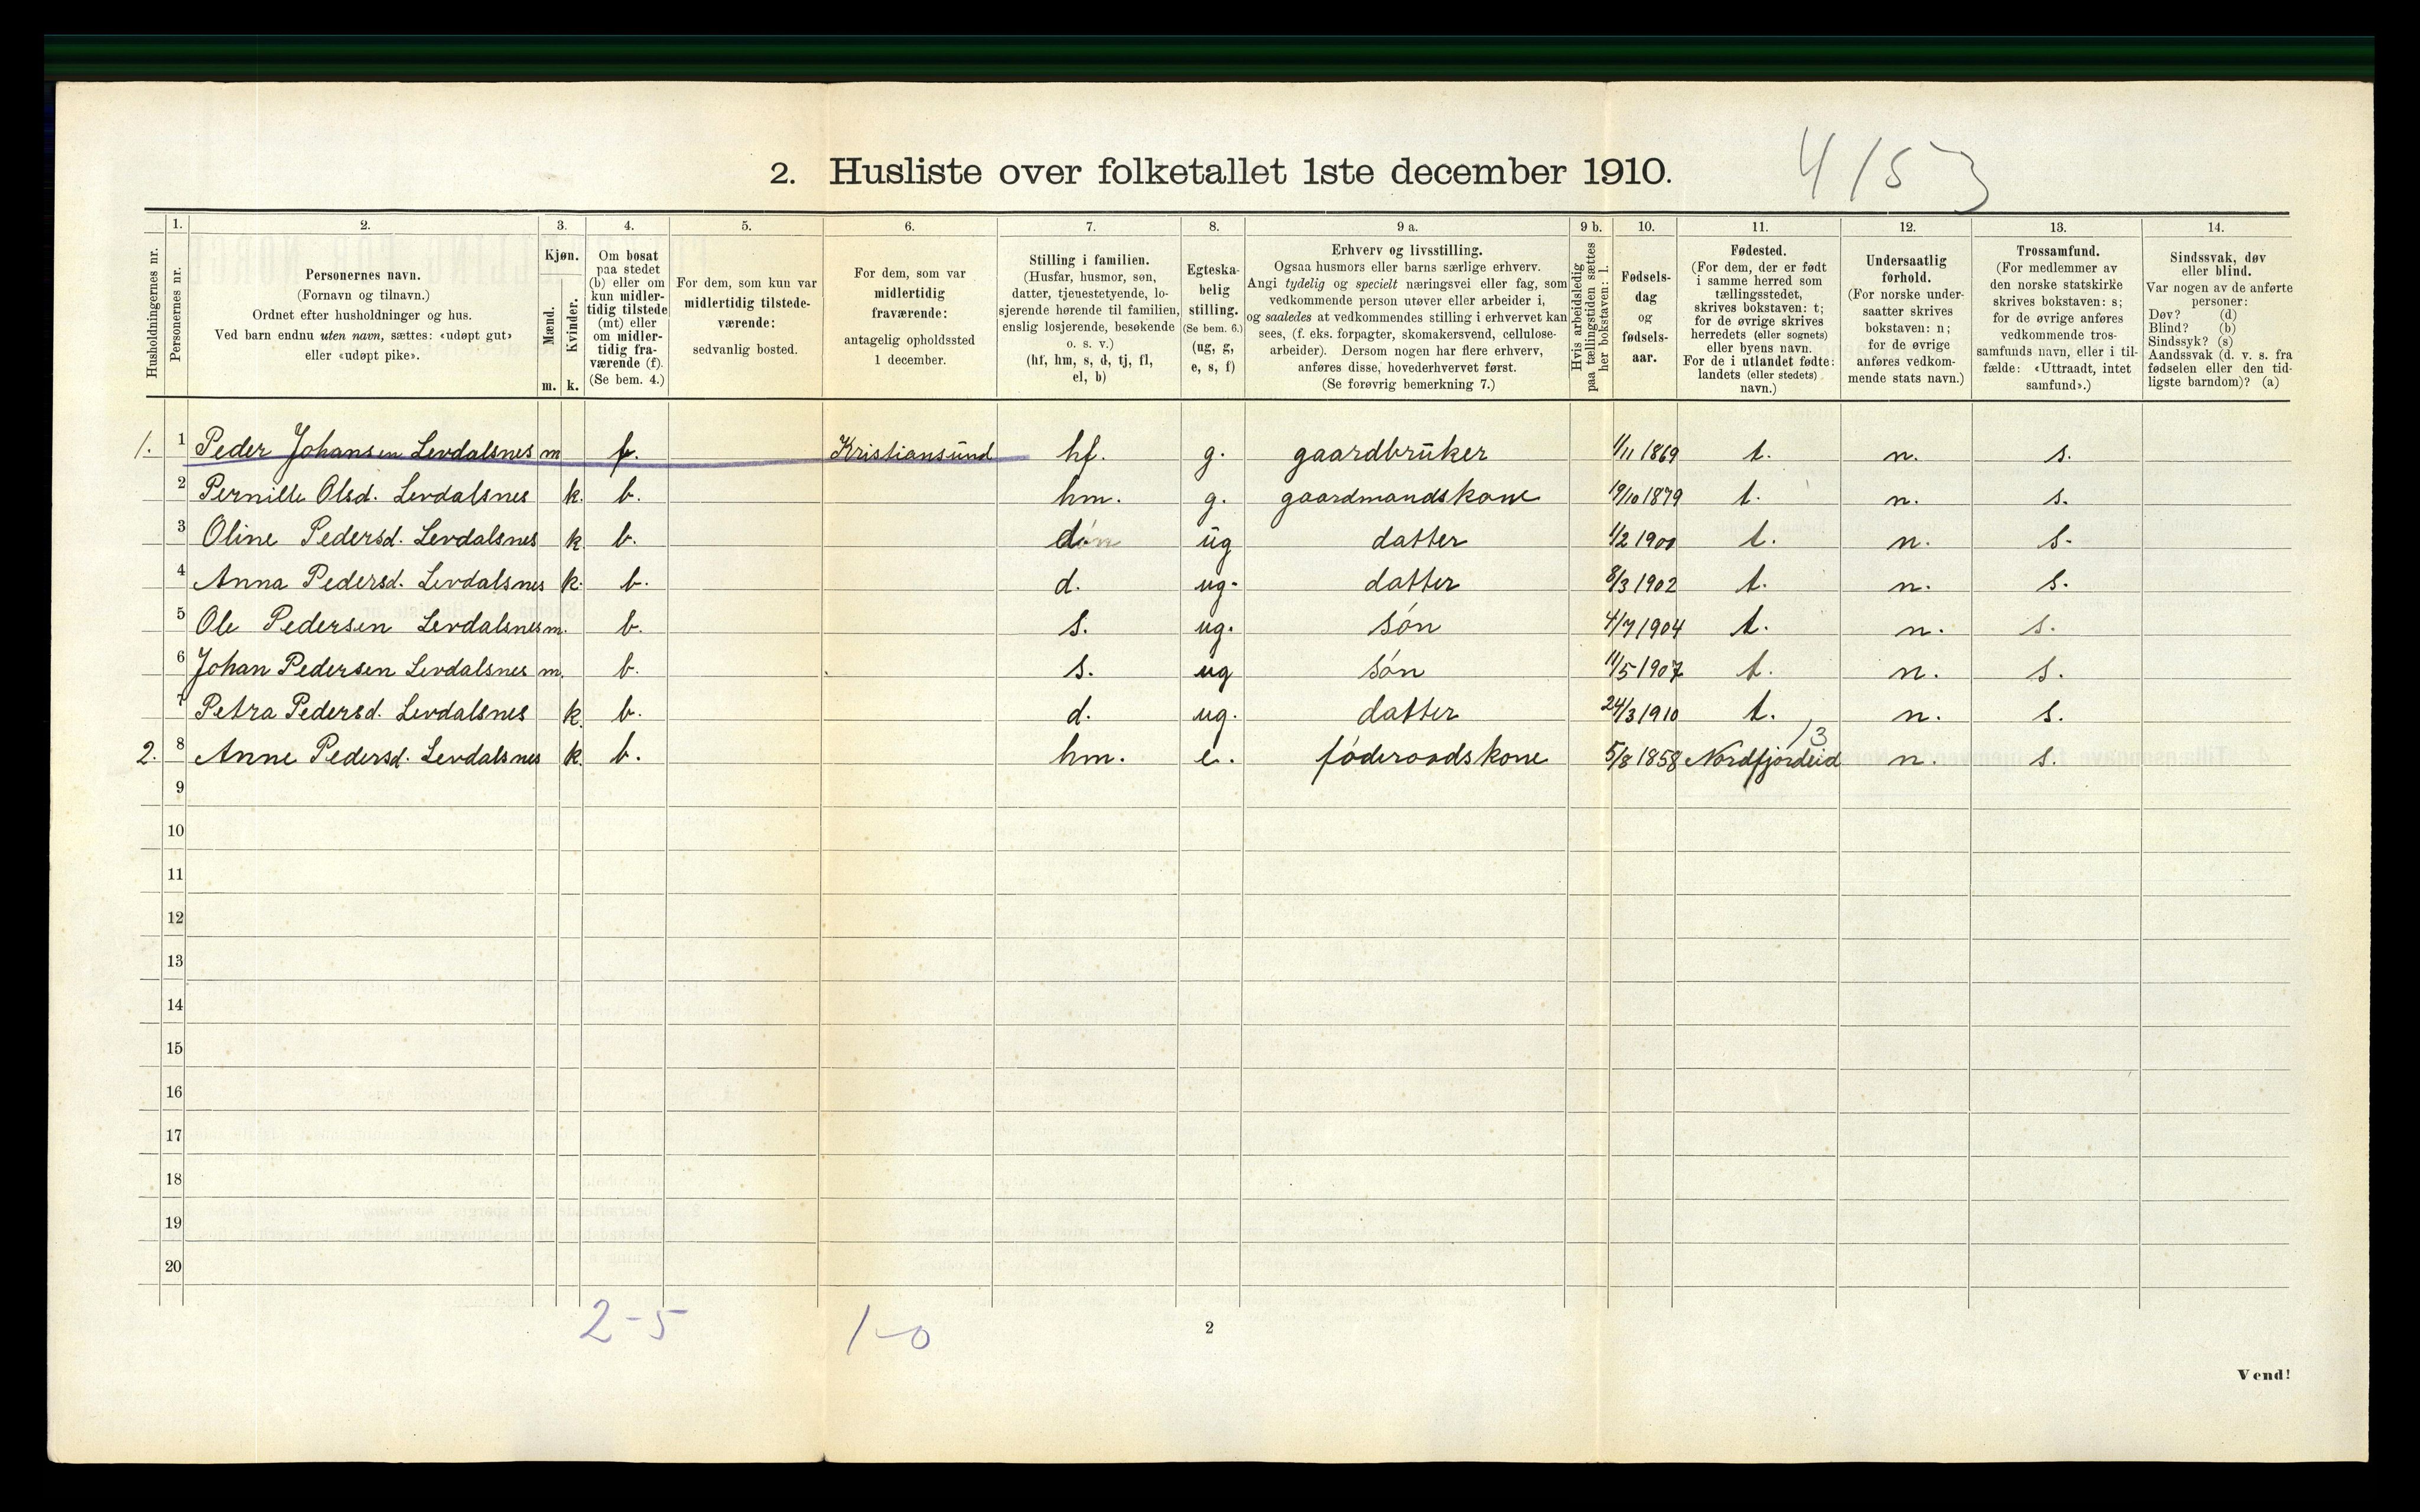 2. Husliste over folketallet 1ste december 1910.
4/53
Husholdningernes nr.
1.
Personernes nr.
2.
Personernes navn.
(Fornavn og tilnavn.)
Ordnet efter husholdninger og hus.
Ved barn endnu uten navn, sættes: «udøpt gut»
eller «udøpt pike».
3.
Kjøn.
Mænd.
Kvinder.
m. k.
4.
Om bosat
paa stedet
(b) eller om
kun midler-
tidig tilstede
(mt) eller
om midler-
tidig fra-
værende (f).
(Se bem. 4.)
5.
For dem, som kun var
midlertidig tilstede-
værende:
sedvanlig bosted.
6.
For dem, som var
midlertidig
fraværende:
antagelig opholdssted
1 december.
7.
Stilling i familien.
(Husfar, husmor, søn,
datter, tjenestetyende, lo-
sjerende hørende til familien,
enslig losjerende, besøkende
o. s. v.)
(hf, hm, s, d, tj, fl,
el, b)
8.
Egteska-
belig
stilling.
(Se bem. 6.)
(ug, g,
e, s, f)
9 a.
Erhverv og livsstilling.
Ogsaa husmors eller barns særlige erhverv.
Angi tydelig og specielt næringsvei eller fag, som
vedkommende person utøver eller arbeider i,
og saaledes at vedkommendes stilling i erhvervet kan
sees, (f. eks. forpagter, skomakersvend, cellulose-
arbeider). Dersom nogen har flere erhverv,
anføres disse, hovederhvervet først.
(Se forøvrig bemerkning 7.)
9 b.
Hvis arbeidsledig
paa tællingstiden sættes
her bokstaven: l.
10.
Fødsels-
dag
og
fødsels-
aar.
11.
Fødested.
(For dem, der er født
i samme herred som
tællingsstedet,
skrives bokstaven: t;
for de øvrige skrives
herredets (eller sognets)
eller byens navn.
For de i utlandet fødte:
landets (eller stedets)
navn.)
12.
Undersaatlig
forhold.
(For norske under-
saatter skrives
bokstaven: n;
for de øvrige
anføres vedkom-
mende stats navn.)
13.
Trossamfund.
(For medlemmer av
den norske statskirke
skrives bokstaven: s;
for de øvrige anføres
vedkommende tros-
samfunds navn, eller i til-
fælde: «Uttraadt, intet
samfund».)
14.
Sindssvak, døv
eller blind.
Var nogen av de anførte
personer:
Døv? (d)
Blind? (b)
Sindssyk? (s)
Aandssvak (d. v. s. fra
fødselen eller den tid-
ligste barndom)? (a)
1. 1 Peder Johansen Levdalsnes m f. Kristiansund hf. g. gaardbruker 1/11 1869 t. n. s.
2 Pernille Olsd. Levdalsnes k. b. hm. g. gaardmandskone 19/10 1879 t. n. s.
3 Oline Pedersd. Levdalsnes k b. d ug datter 1/2 1900 t. n. s.
4 Anna Pedersd. Levdalsnes k. b. d. ug. datter 8/3 1902 t. n. s.
5 Ole Pedersen Levdalsnes m. b. s. ug. søn 4/7 1904 t. n. s.
6 Johan Pedersen Levdalsnes m. b. s. ug søn 11/5 1907 t. n. s.
7 Petra Pedersd. Levdalsnes k. b. d. ug. datter 24/3 1910 t. n. s.
13
2. 8 Anne Pedersd. Levdalsnes k. b. hm. e. føderaadskone 5/8 1858 Nordfjordeid n. s.
9
10
11
12
13
14
15
16
17
18
19
20
2-5
1-0
2
Vend!